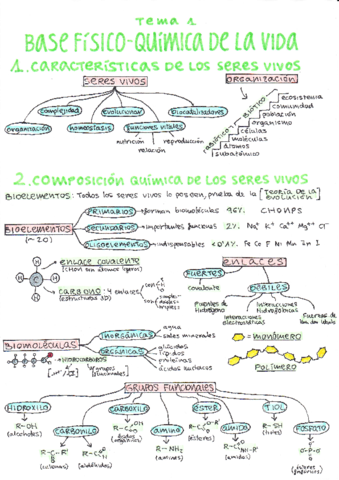 TEMA 1
BASE FÍSICO-QUÍMICA DE LA VIDA
1. CARACTERÍSTICAS DE LOS SERES VIVOS
SERES VIVOS
ORGANIZACIÓN
complejidad
evolucionar
Biocatalizadores
organización
homeostasis
funciones vitales
nutrición
reproducción
relación
ABIÓTICO
BIÓTICO
ecosistema
comunidad
población
organismo
células
moléculas
átomos
subatómico
2. COMPOSICIÓN QUÍMICA DE LOS SERES VIVOS
BIOELEMENTOS: Todos los seres vivos lo poseen, prueba de la [TEORÍA DE LA EVOLUCIÓN]
BIOELEMENTOS
(~20)
PRIMARIOS → forman biomoléculas 96% CHONPS
SECUNDARIOS → importantes funciones 2% Na⁺ K⁺ Ca²⁺ Mg²⁺ Cl⁻
OLIGOELEMENTOS → indispensables <0'1% Fe Co F Ni Mn Zn I
enlace covalente
(CHON son átomos ligeros)
H
C
carbono: 4 enlaces
(estructuras 3D)
ENLACES
FUERTES
covalente
DÉBILES
Puentes de Hidrógeno
Interacciones electrostáticas
Interacciones Hidrofóbicas
Fuerzas de Van der Waals
BIOMOLÉCULAS
INORGÁNICAS
agua
sales minerales
ORGÁNICAS
glúcidos
lípidos
proteínas
ácidos nucleicos
HIDROCARBUROS
[grupos funcionales]
monómero
POLÍMERO
GRUPOS FUNCIONALES
HIDROXILO
R-OH
(alcoholes)
CARBONILO
(cetonas)
(aldehídos)
CARBOXILO
(ácidos orgánicos)
amino
R-NH₂
(aminas)
ÉSTER
(ésteres)
amida
(amidas)
TIOL
R-SH
(tioles)
FOSFATO